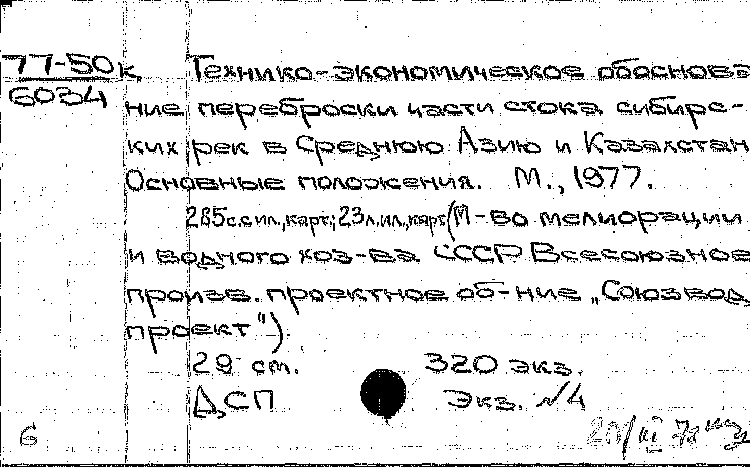 77-50к Технико-экономическое обоснова
6034 ние переброски части стока сибирс-
ких рек в Среднюю Азию и Казахстан
Основные положения. М., 1977.
285с.с ил., карт.; 23л.ил., карт. (М-во мелиорации
и водного хоз-ва СССР Всесоюзное
произв. проектное об-ние „Союзвод
проект")
29 см. 320 экз.
ДСП Экз. №4
6